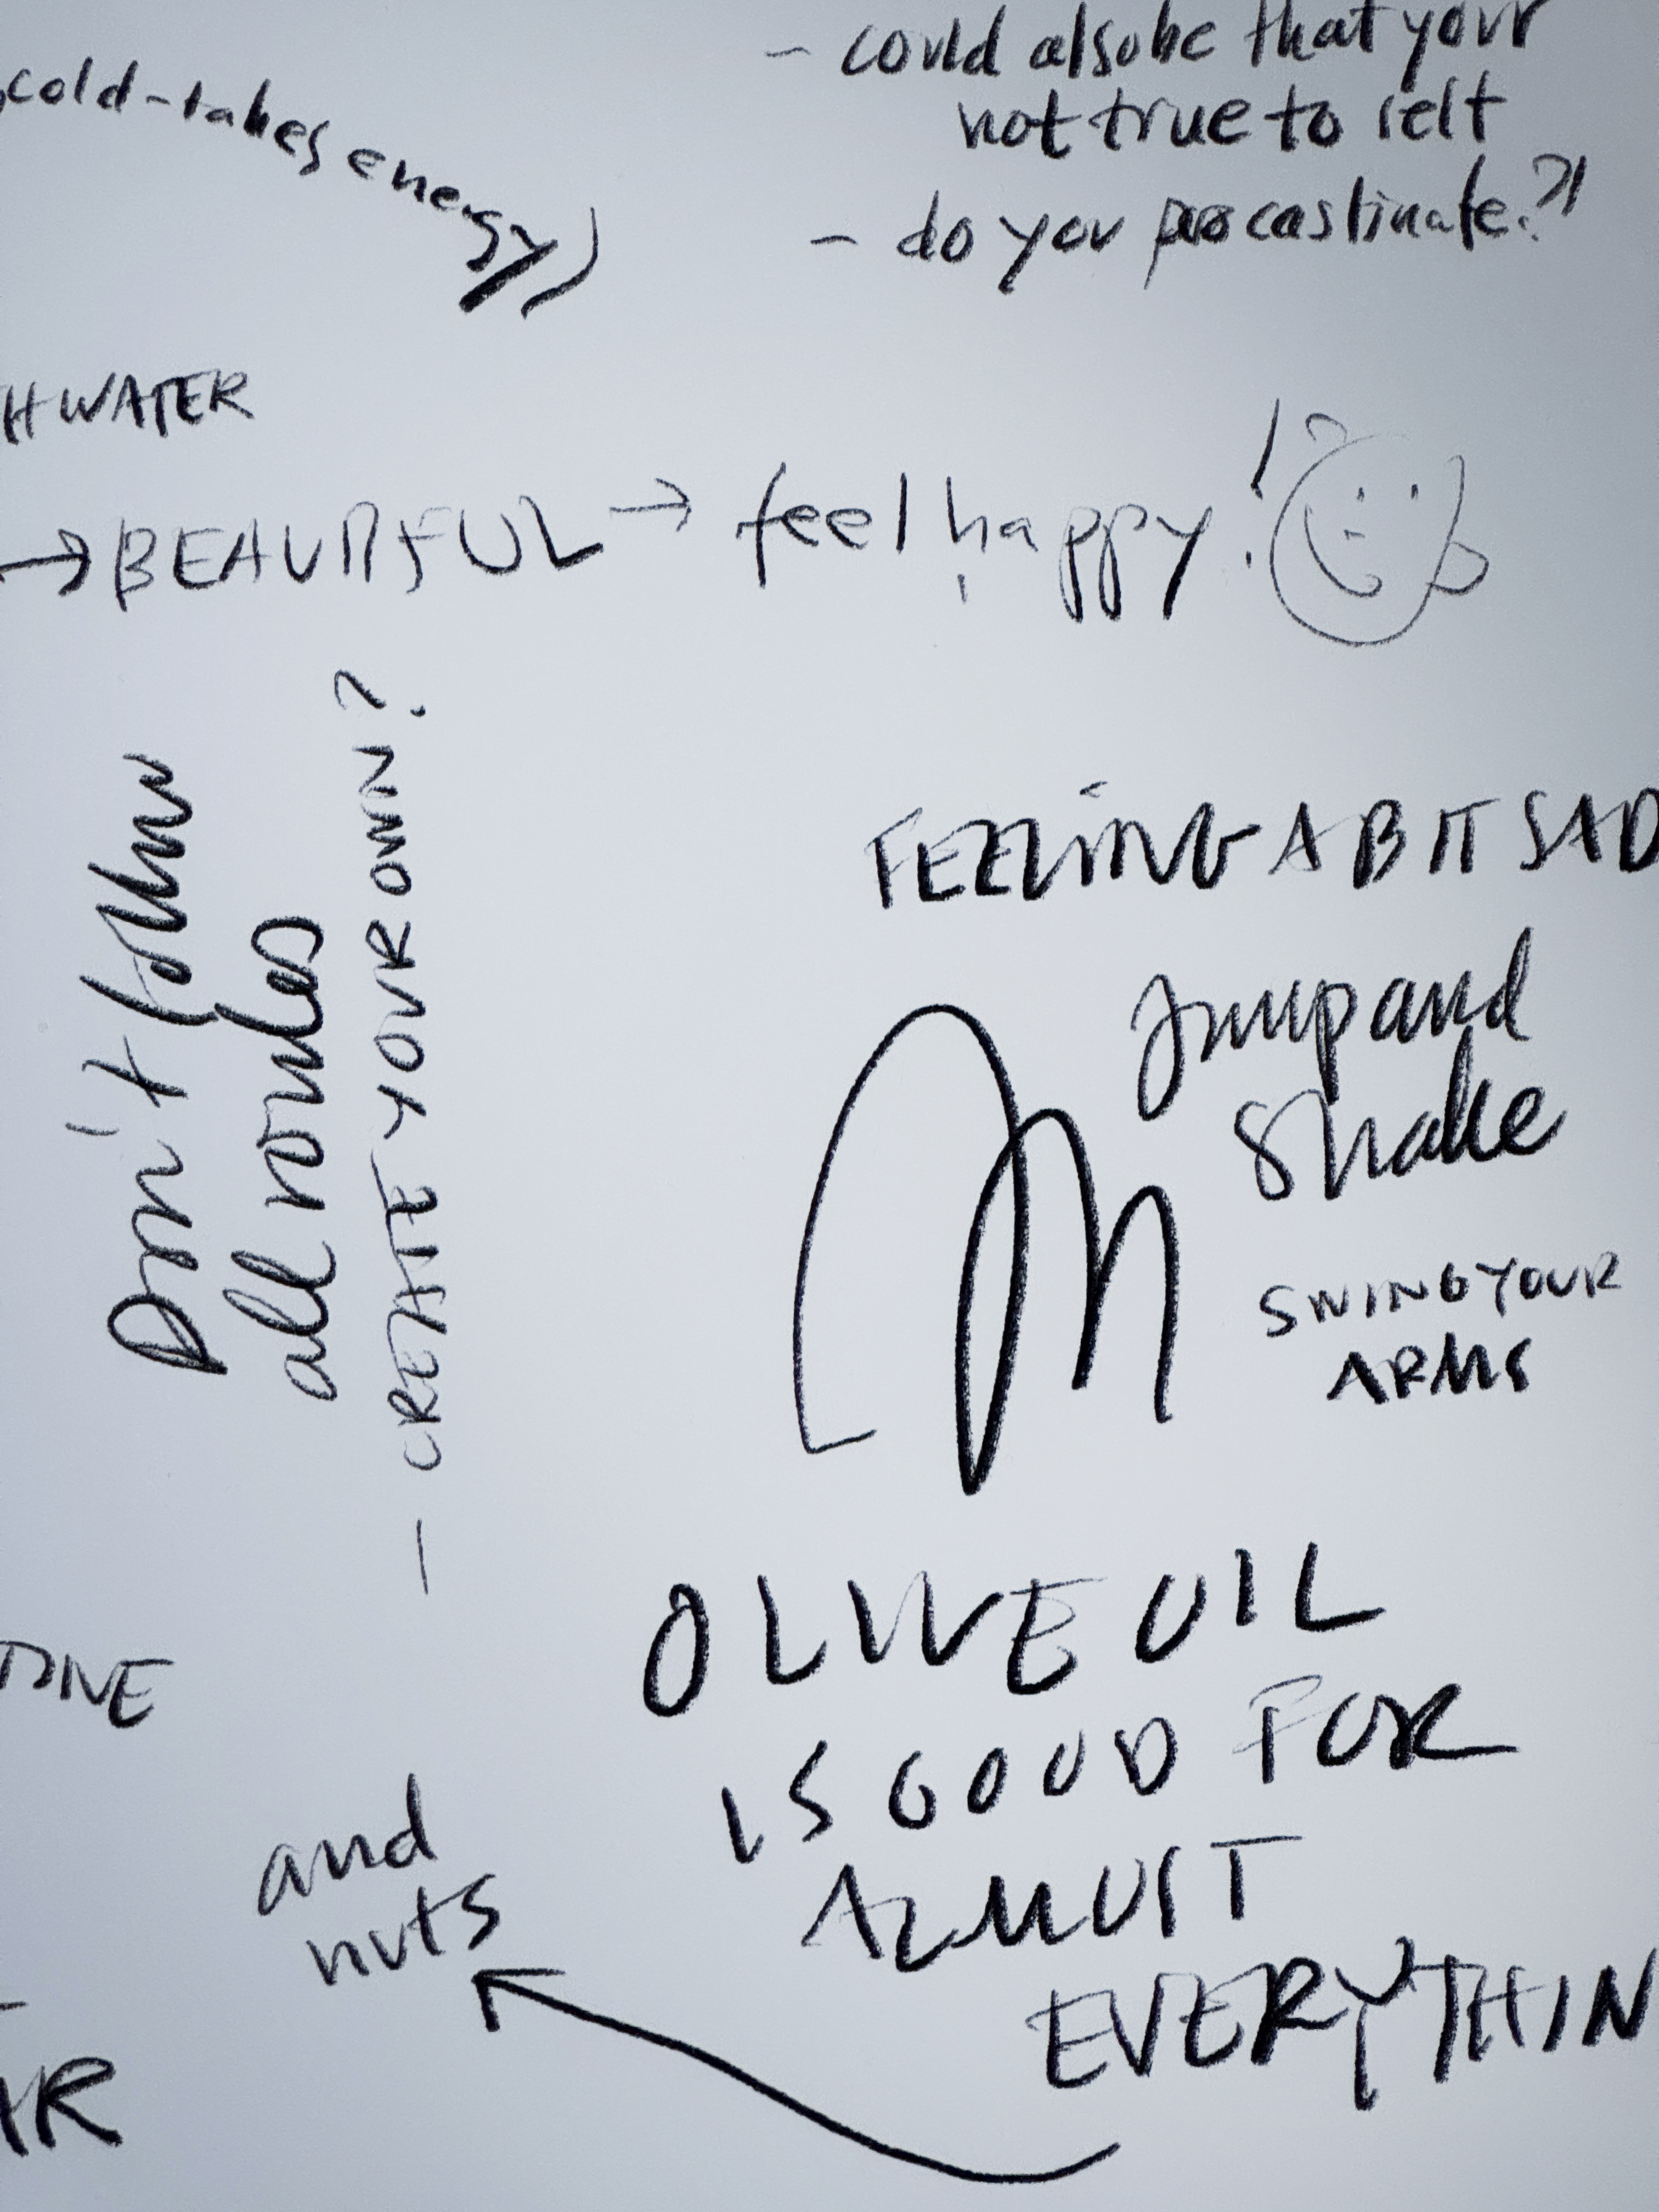 cold-takes energy)
- could also be that your
not true to self
- do you procastinate?!
H WATER
→ BEAUTIFUL → feel happy!
Don't follow
all roules
- CREATE YOUR OWN?
FEELING A BIT SAD
Jump and
Shake
SWING YOUR
ARMS
OLIVE OIL
IS GOOD FOR
ALMOST
EVERYTHIN
and
nuts